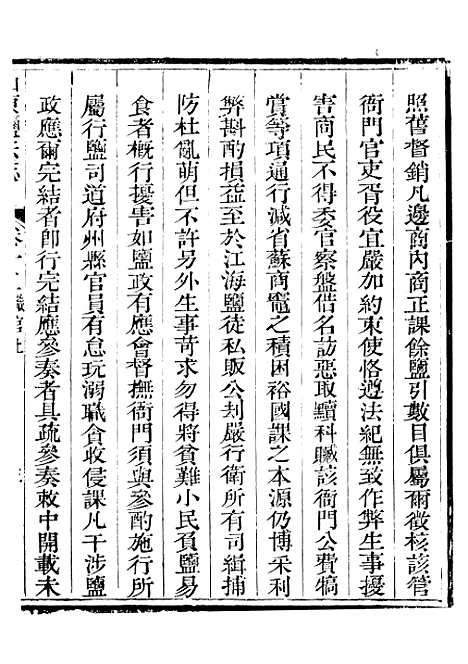 照舊督銷凡邊商內商正課餘鹽引數目俱屬爾徵核該管
衙門官吏胥役宜嚴加約束使恪遵法紀無致作弊生事擾
害商民不得委官察盤借名訪惡取贖科贓該衙門公費犒
賞等項通行減省蘇商竈之積困裕國課之本源仍博采利
弊斟酌損益至於江海鹽徒私販公刦嚴行衛所有司緝捕
防杜亂萌但不許另外生事苛求勿得將貧難小民負鹽易
食者概行擾害如鹽政有應會督撫衙門須與參酌施行所
屬行鹽司道府州縣官員有怠玩溺職貪收侵課凡干涉鹽
政應爾完結者卽行完結應參奏者具疏參奏敕中開載未
山東鹽法志
職官上